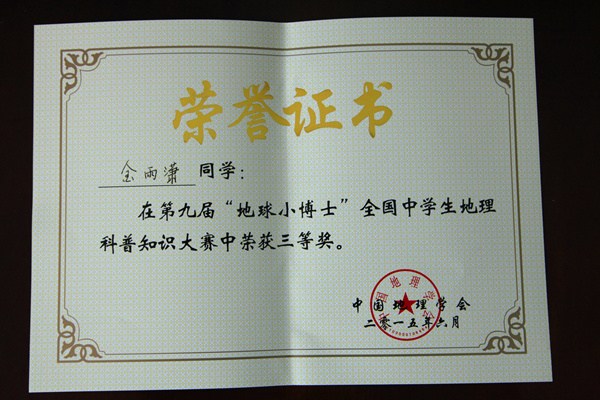 荣誉证书
金雨潇同学：
在第九届“地球小博士”全国中学生地理
科普知识大赛中荣获三等奖。
中国地理学会
二零一五年六月
中国地理学会